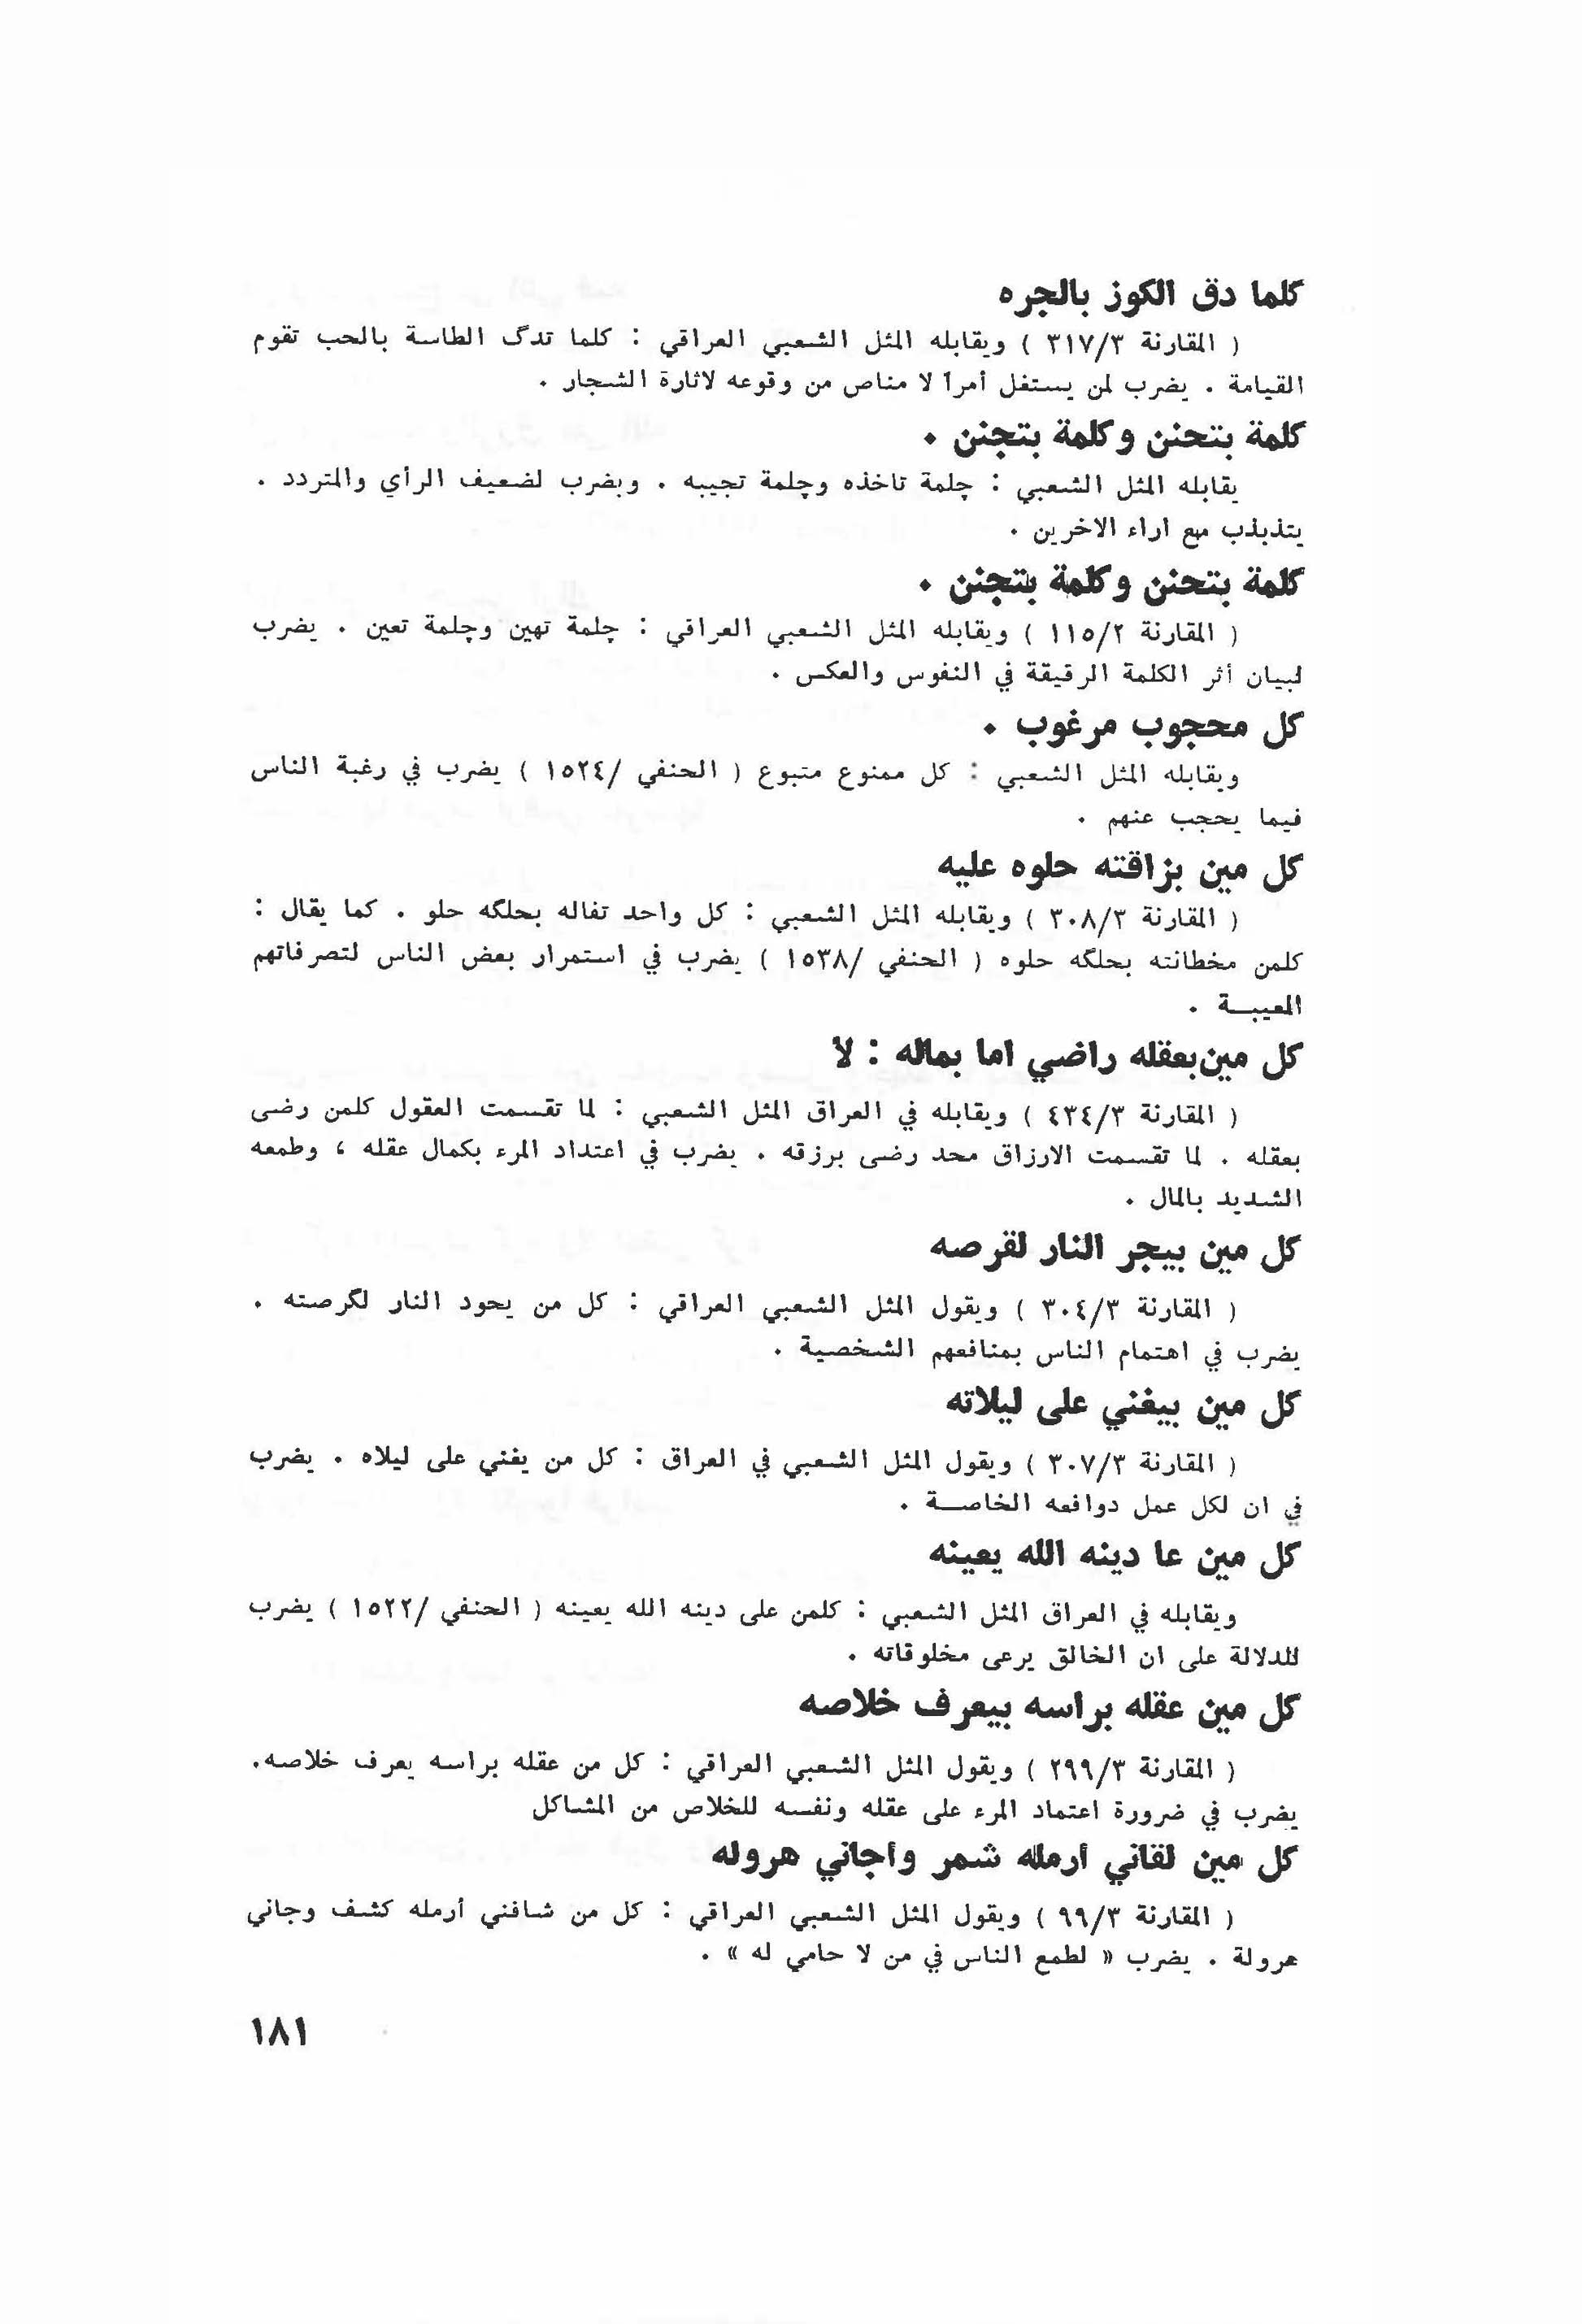 كلما دق الكوز بالجره
( المقارنة ٣١٧/٣ ) ويقابله المثل الشعبي العراقي : كلما تدگ الطاسة بالحب تقوم
القيامة . يضرب لمن يستغل أمراً لا مناص من وقوعه لاثارة الشجار .
كلمة بتحنن وكلمة بتجنن .
يقابله المثل الشعبي : چلمة تاخذه وچلمة تجيبه . ويضرب لضعيف الرأي والمتردد .
يتذبذب مع اراء الاخرين .
كلمة بتحنن وكلمة بتجنن .
( المقارنة ١١٥/٢ ) ويقابله المثل الشعبي العراقي : چلمة تهين وچلمة تعين . يضرب
لبيان أثر الكلمة الرقيقة في النفوس والعكس .
كل محجوب مرغوب .
ويقابله المثل الشعبي : كل ممنوع متبوع ( الحنفي /١٥٢٤ ) يضرب في رغبة الناس
فيما يحجب عنهم .
كل مين بزاقته حلوه عليه
( المقارنة ٣٠٨/٣ ) ويقابله المثل الشعبي : كل واحد تفاله بحلگه حلو . كما يقال :
كلمن مخطانته بحلگه حلوه ( الحنفي /١٥٣٨ ) يضرب في استمرار بعض الناس لتصرفاتهم
المعيبــة .
كل مين بعقله راضي اما بماله : لا
( المقارنة ٤٣٤/٣ ) ويقابله في العراق المثل الشعبي : لما تقسمت العقول كلمن رضى
بعقله . لما تقسمت الارزاق محد رضى برزقه . يضرب في اعتداد المرء بكمال عقله ، وطمعه
الشديد بالمال .
كل مين بيجر النار لقرصه
( المقارنة ٣٠٤/٣ ) ويقول المثل الشعبي العراقي : كل من يحود النار لگرصته .
يضرب في اهتمام الناس بمنافعهم الشخصية .
كل مين بيغني على ليلاته
( المقارنة ٣٠٧/٣ ) ويقول المثل الشعبي في العراق : كل من يغني على ليلاه . يضرب
في ان لكل عمل دوافعه الخاصــة .
كل مين عا دينه الله يعينه
ويقابله في العراق المثل الشعبي : كلمن على دينه الله يعينه ( الحنفي /١٥٢٢ ) يضرب
للدلالة على ان الخالق يرعى مخلوقاته .
كل مين عقله براسه بيعرف خلاصه
( المقارنة ٢٩٩/٣ ) ويقول المثل الشعبي العراقي : كل من عقله براسه يعرف خلاصه.
يضرب في ضرورة اعتماد المرء على عقله ونفسه للخلاص من المشاكل
كل مين لقاني أرمله شمر وأجاني هروله
( المقارنة ٩٩/٣ ) ويقول المثل الشعبي العراقي : كل من شافني أرمله كشف وجاني
هرولة . يضرب « لطمع الناس في من لا حامي له » .
١٨١